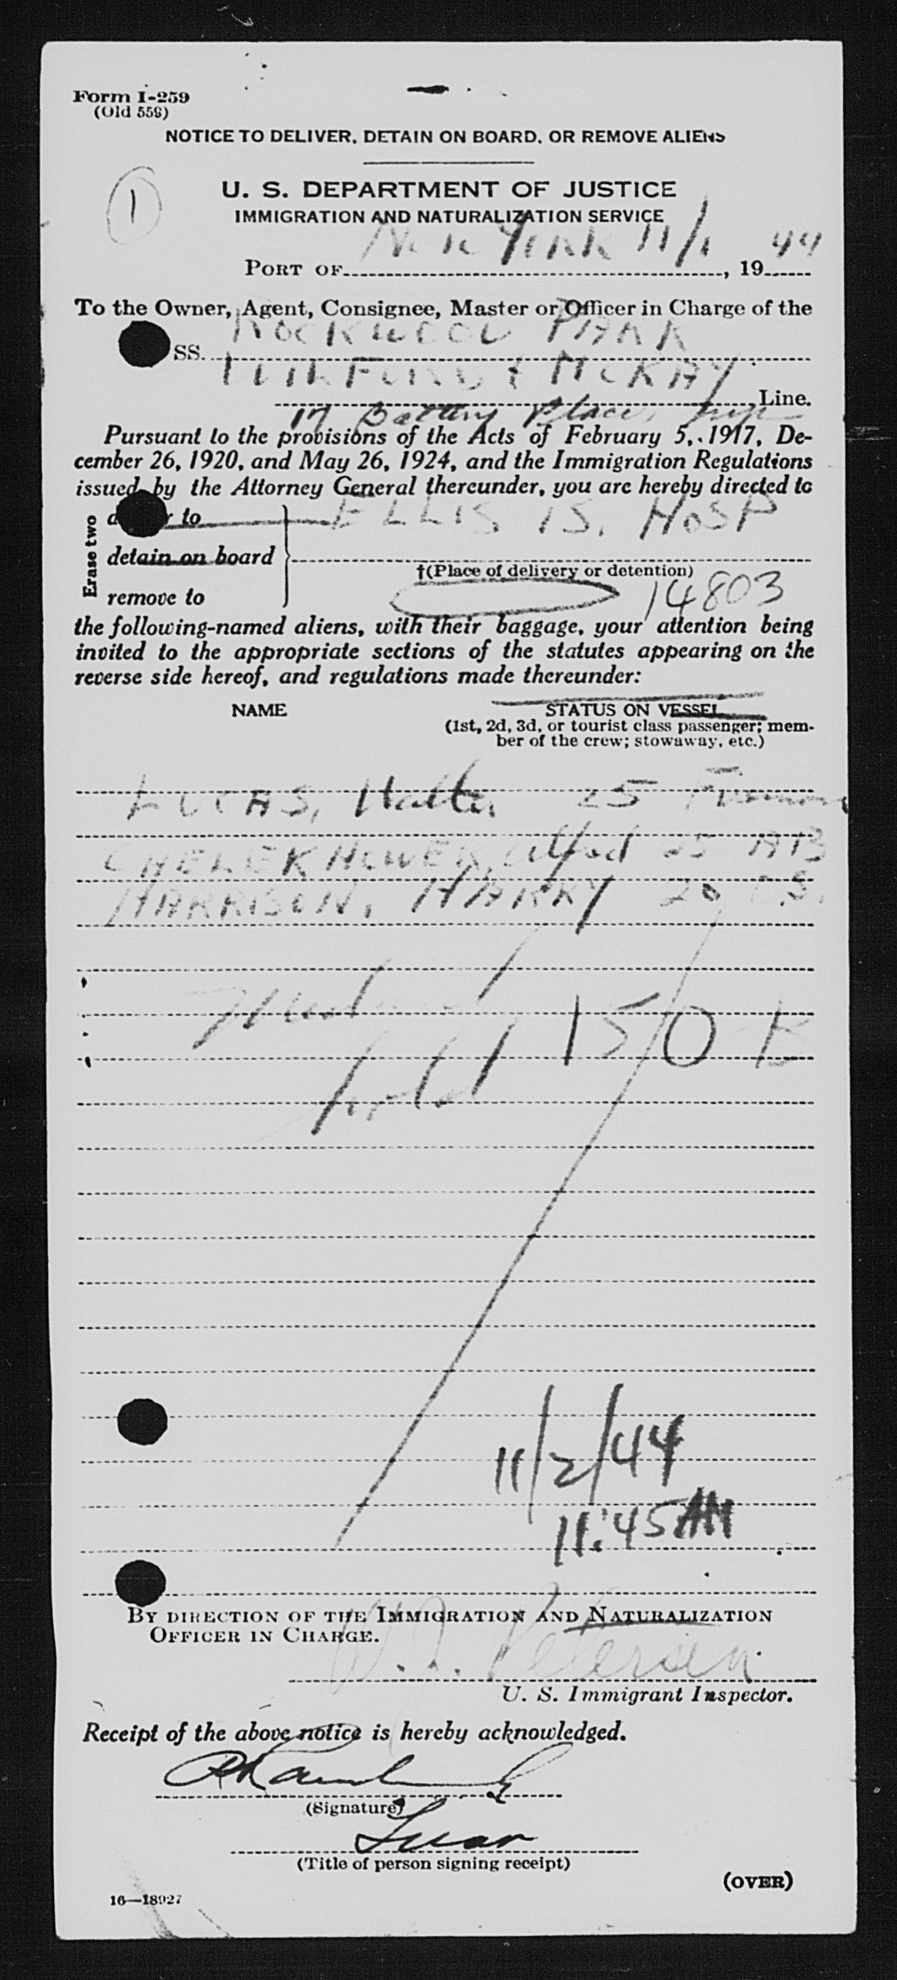 Form I-259
(Old 559)
NOTICE TO DELIVER, DETAIN ON BOARD, OR REMOVE ALIENS
1
U. S. DEPARTMENT OF JUSTICE
IMMIGRATION AND NATURALIZATION SERVICE
PORT OF New York 11/1, 1944
To the Owner, Agent, Consignee, Master or Officer in Charge of the
SS. ROCKWOOD PARK
& McKAY Line.
17 Battery Place, nyc
Pursuant to the provisions of the Acts of February 5, 1917, De-
cember 26, 1920, and May 26, 1924, and the Immigration Regulations
issued by the Attorney General thereunder, you are hereby directed to
to ELLIS IS. HOSP
Erase two
detain on board
†(Place of delivery or detention)
remove to
14803
the following-named aliens, with their baggage, your attention being
invited to the appropriate sections of the statutes appearing on the
reverse side hereof, and regulations made thereunder:
NAME STATUS ON VESSEL
(1st, 2d, 3d, or tourist class passenger; mem-
ber of the crew; stowaway, etc.)
LUCAS, Walter 25 Fireman
Alfred 25
HARRISON, HARRY 20
150
11/2/44
11:45 AM
BY DIRECTION OF THE IMMIGRATION AND NATURALIZATION
OFFICER IN CHARGE.
W. J. Petersen
U. S. Immigrant Inspector.
Receipt of the above notice is hereby acknowledged.
(Signature)
(Title of person signing receipt)
(OVER)
16—18927